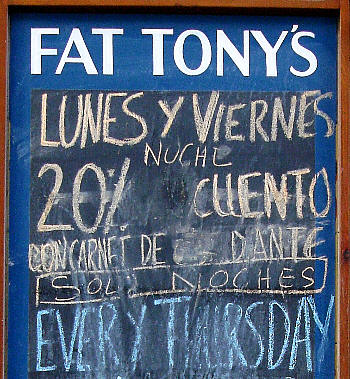 FAT TONY'S
LUNES Y VIERNES
NUCHE
20% CUENTO
CON CARNET DE DANTE
SOL NOCHES
EVERY THURSDAY